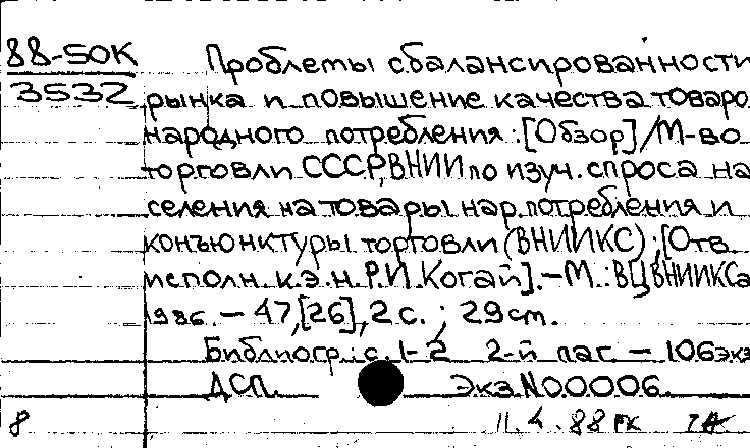 88-50К
3532
Проблемы сбалансированности
рынка и повышение качества товаро
народного потребления : [Обзор] / М-во
торговли СССР, ВНИИ по изуч. спроса на
селения на товары нар. потребления и
конъюнктуры торговли (ВНИИКС) ; [Отв.
исполн. к.э.н. Р.И. Когай]. – М. : ВЦ ВНИИКСа
1986. – 47, [26], 2 с. ; 29 см.
Библиогр.: с. 1-2 2-й паг. – 106 экз
ДСП. Экз. N00006.
8 11.4.88